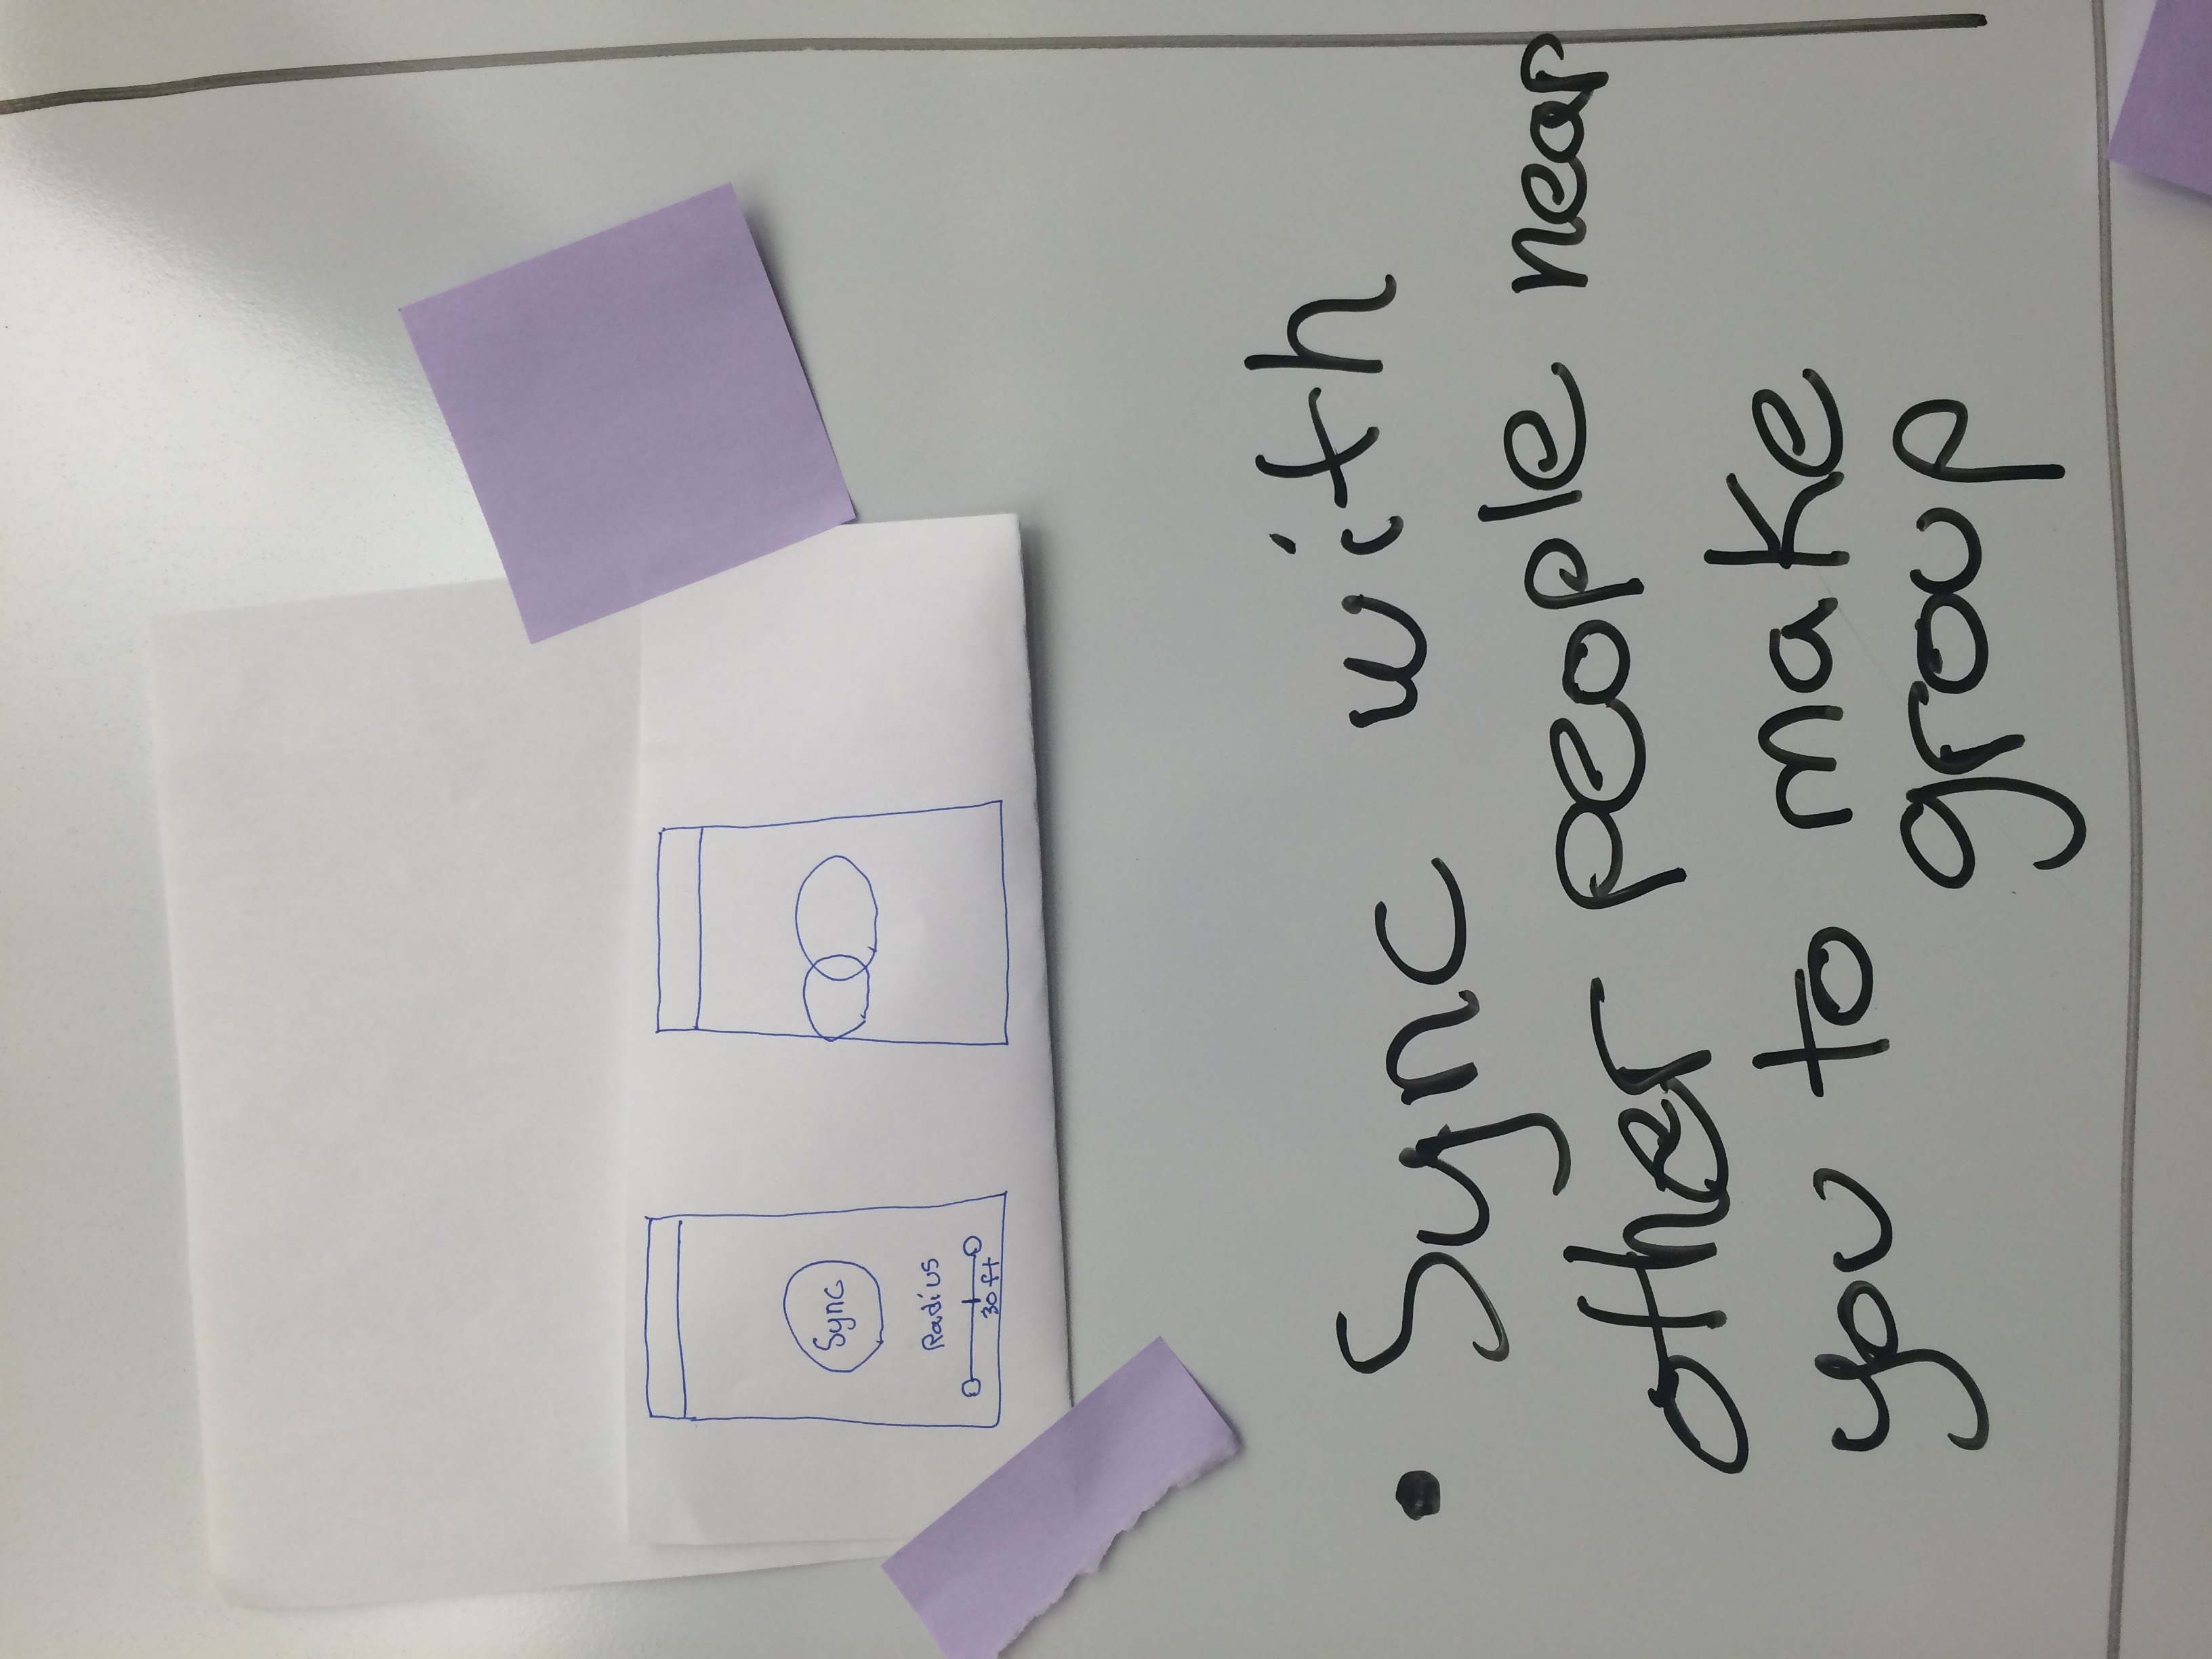 Sync
Radius
30 ft
• Sync with
other people near
you to make
group